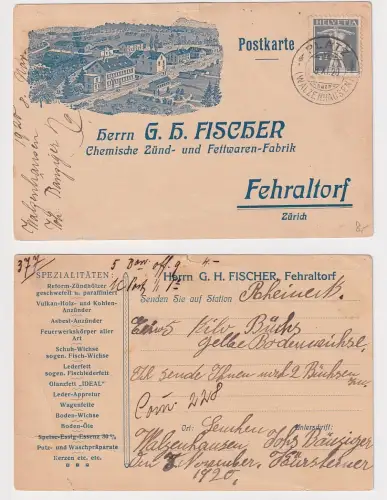 Postkarte
HELVETIA
(WALZENHAUSEN)
Herrn G. H. FISCHER
Chemische Zünd- und Fettwaren-Fabrik
Fehraltorf
Zürich
Walzenhausen 1920 8. Nov.
Joh. Bänziger
8.-
377
SPEZIALITÄTEN:
Reform-Zündhölzer
geschwefelt u. paraffiniert
Vulkan-Holz- und Kohlen-
Anzünder
Asbest-Anzünder
Feuerwerkskörper aller
Art
Schuh-Wichse
sogen. Fisch-Wichse
Lederfett
sogen. Fischlederfett
Glanzfett „IDEAL"
Leder-Appretur
Wagenfette
Boden-Wichse
Boden-Öle
Speise-Essig-Essenz 80%
Putz- und Waschpräparate
Kerzen etc. etc.
Herrn G. H. FISCHER, Fehraltorf
Senden Sie auf Station Rheineck.
Kilo Büchs
gelbe Bodenwichse.
sende Ihnen 9 Büchsen
228
Ort:
Unterschrift:
Walzenhausen, Joh. Bänziger
November
1920.